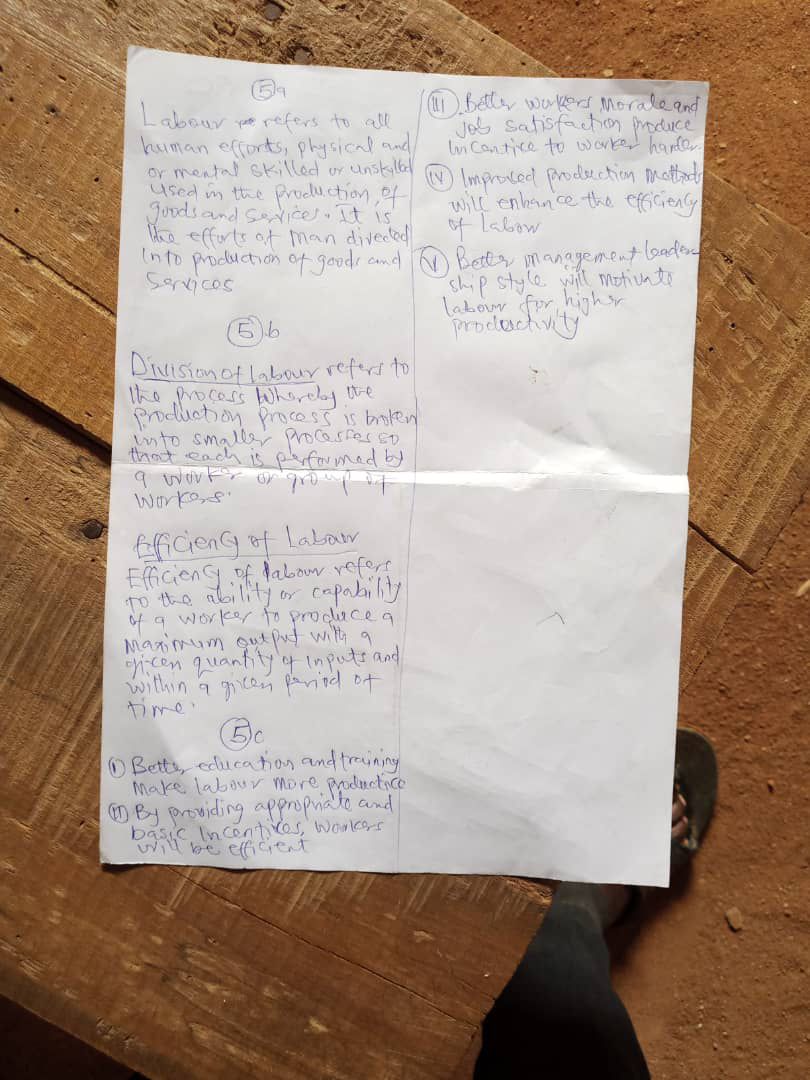 5a
Labour refers to all
human efforts, physical and
or mental skilled or unskilled
used in the production, of
goods and services. It is
the efforts of man directed
into production of goods and
Services
5b
Division of labour refers to
the process whereby the
production process is broken
into smaller processes so
that each is performed by
a worker or group of
workers.
Efficiency of Labour
Efficiency of labour refers
to the ability or capability
of a worker to produce a
maximum output with a
given quantity of inputs and
within a given period of
time.
5c
(i) Better education and training
make labour more productive
(ii) By providing appropriate and
basic incentives, workers
will be efficient
(iii) Better workers morale and
job satisfaction produce
incentive to worker harder.
(iv) Improved production methods
will enhance the efficiency
of labour
(v) Better management leader
ship style will motivate
labour for higher
productivity